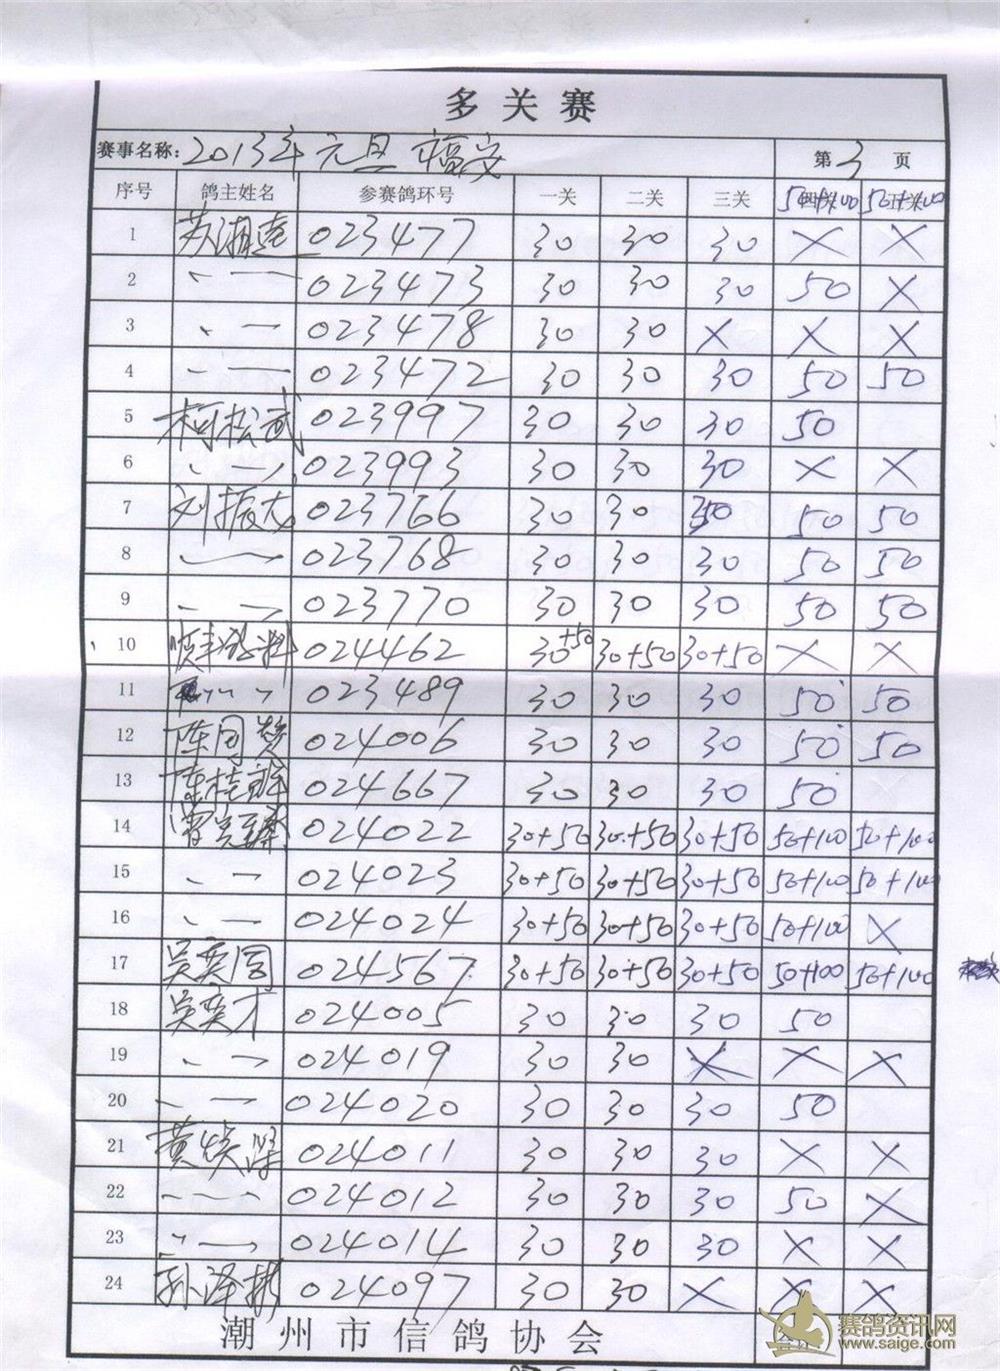 多关赛
赛事名称: 2013年元旦 福安 第3页
序号 鸽主姓名 参赛鸽环号 一关 二关 三关 50 四关 100 50 五关 100
1 苏湘逵 023477 30 30 30 × ×
2 〃 — 023473 30 30 30 50 ×
3 〃 — 023478 30 30 × × ×
4 〃 — 023472 30 30 30 50 50
5 柯松武 023997 30 30 30 50
6 〃 — 023993 30 30 30 × ×
7 刘振龙 023766 30 30 30 50 50
8 〃 — 023768 30 30 30 50 50
9 〃 — 023770 30 30 30 50 50
10 顺丰饲料 024462 30+50 30+50 30+50 × ×
11 〃 023489 30 30 30 50 50
12 陈同 024006 30 30 30 50 50
13 陈桂 024667 30 30 30 50
14 024022 30+50 30+50 30+50 50+100 50+100
15 〃 — 024023 30+50 30+50 30+50 50+100 50+100
16 〃 — 024024 30+50 30+50 30+50 50+100 ×
17 吴奕国 024567 30+50 30+50 30+50 50+100 50+100
18 吴奕才 024005 30 30 30 50
19 〃 — 024019 30 30 × × ×
20 〃 — 024020 30 30 30 50
21 黄焕 024011 30 30 30 × ×
22 〃 — 024012 30 30 30 50 ×
23 〃 — 024014 30 30 30 × ×
24 孙泽彬 024097 30 30 × × ×
潮州市信鸽协会
赛鸽资讯网
www.saige.com